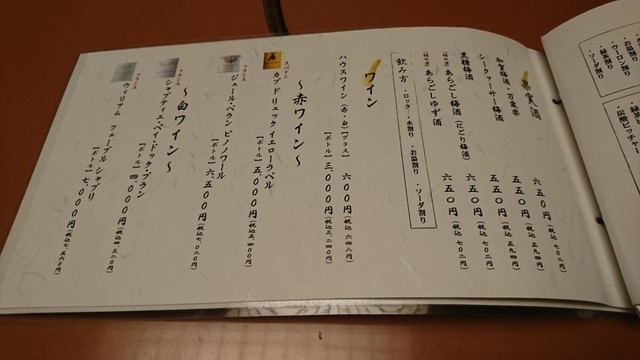 果実酒
加賀梅酒・万歳楽 六五〇円(税込 七〇二円)
シークァーサー梅酒 五五〇円(税込 五九四円)
黒糖梅酒 五五〇円(税込 五九四円)
あらごし梅酒(にごり梅酒) 六五〇円(税込 七〇二円)
あらごしゆず酒 六五〇円(税込 七〇二円)
飲み方 ・ロック ・水割り ・お湯割り ・ソーダ割り
ワイン
ハウスワイン(赤・白)【グラス】 六〇〇円(税込 六四八円)
【ボトル】三、〇〇〇円(税込三、二四〇円)
〜赤ワイン〜
スペイン
カブ ド リュック イエローラベル
【ボトル】五、〇〇〇円(税込五、四〇〇円)
フランス
ジュール・ベラン ピノ ノワール
【ボトル】六、五〇〇円(税込七、〇二〇円)
〜白ワイン〜
フランス
シャッティエ・ペイ・ドック・ブラン
【ボトル】四、〇〇〇円(税込四、三二〇円)
フランス
ウィリアム フェーブル シャブリ
【ボトル】七、〇〇〇円(税込七、五六〇円)
・お湯割り
・ウーロン割り
・緑茶割り
・ソーダ割り